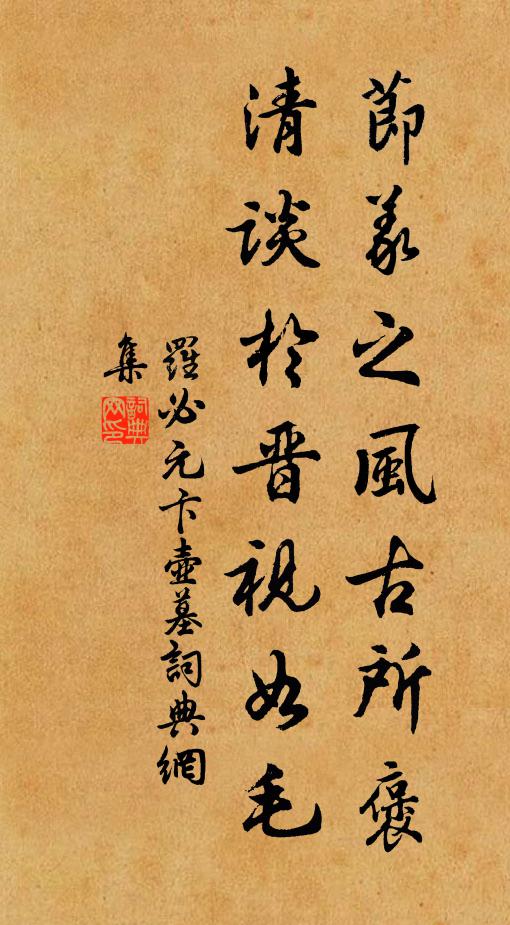 節義之風古所褒
清談於晋視如毛
羅必元卞壺墓詞典網
集
詞典網印